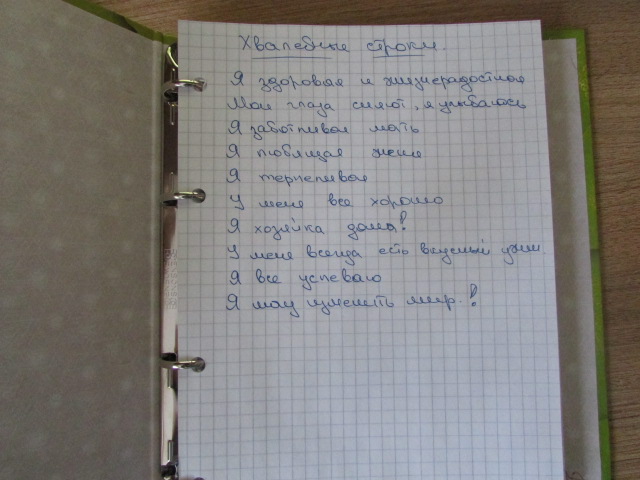 Хвалебные строки.
Я здоровая и жизнерадостная
Мои глаза сияют, я улыбаюсь
Я заботливая мать
Я любящая жена
Я терпеливая
У меня все хорошо
Я хозяйка дома!
У меня всегда есть вкусный ужин.
Я все успеваю
Я могу изменить мир.!